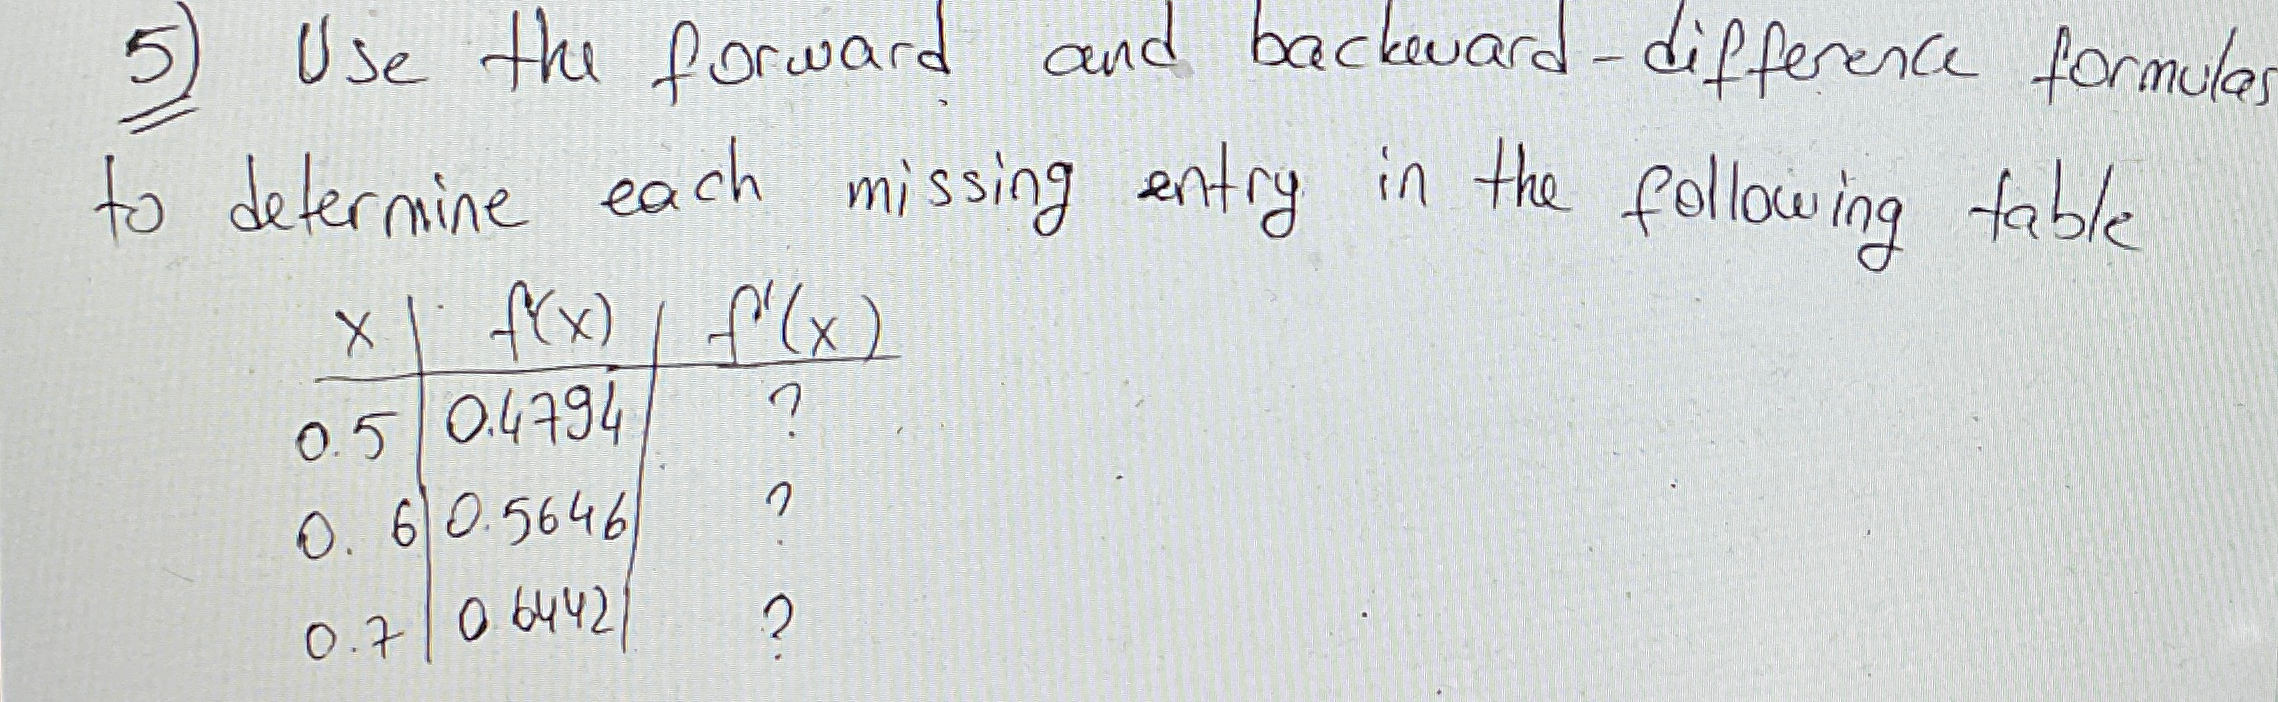 5) Use the forward and backward-difference formulas
to determine each missing entry in the following table
x | f(x) | f'(x)
0.5 | 0.4794 | ?
0.6 | 0.5646 | ?
0.7 | 0.6442 | ?